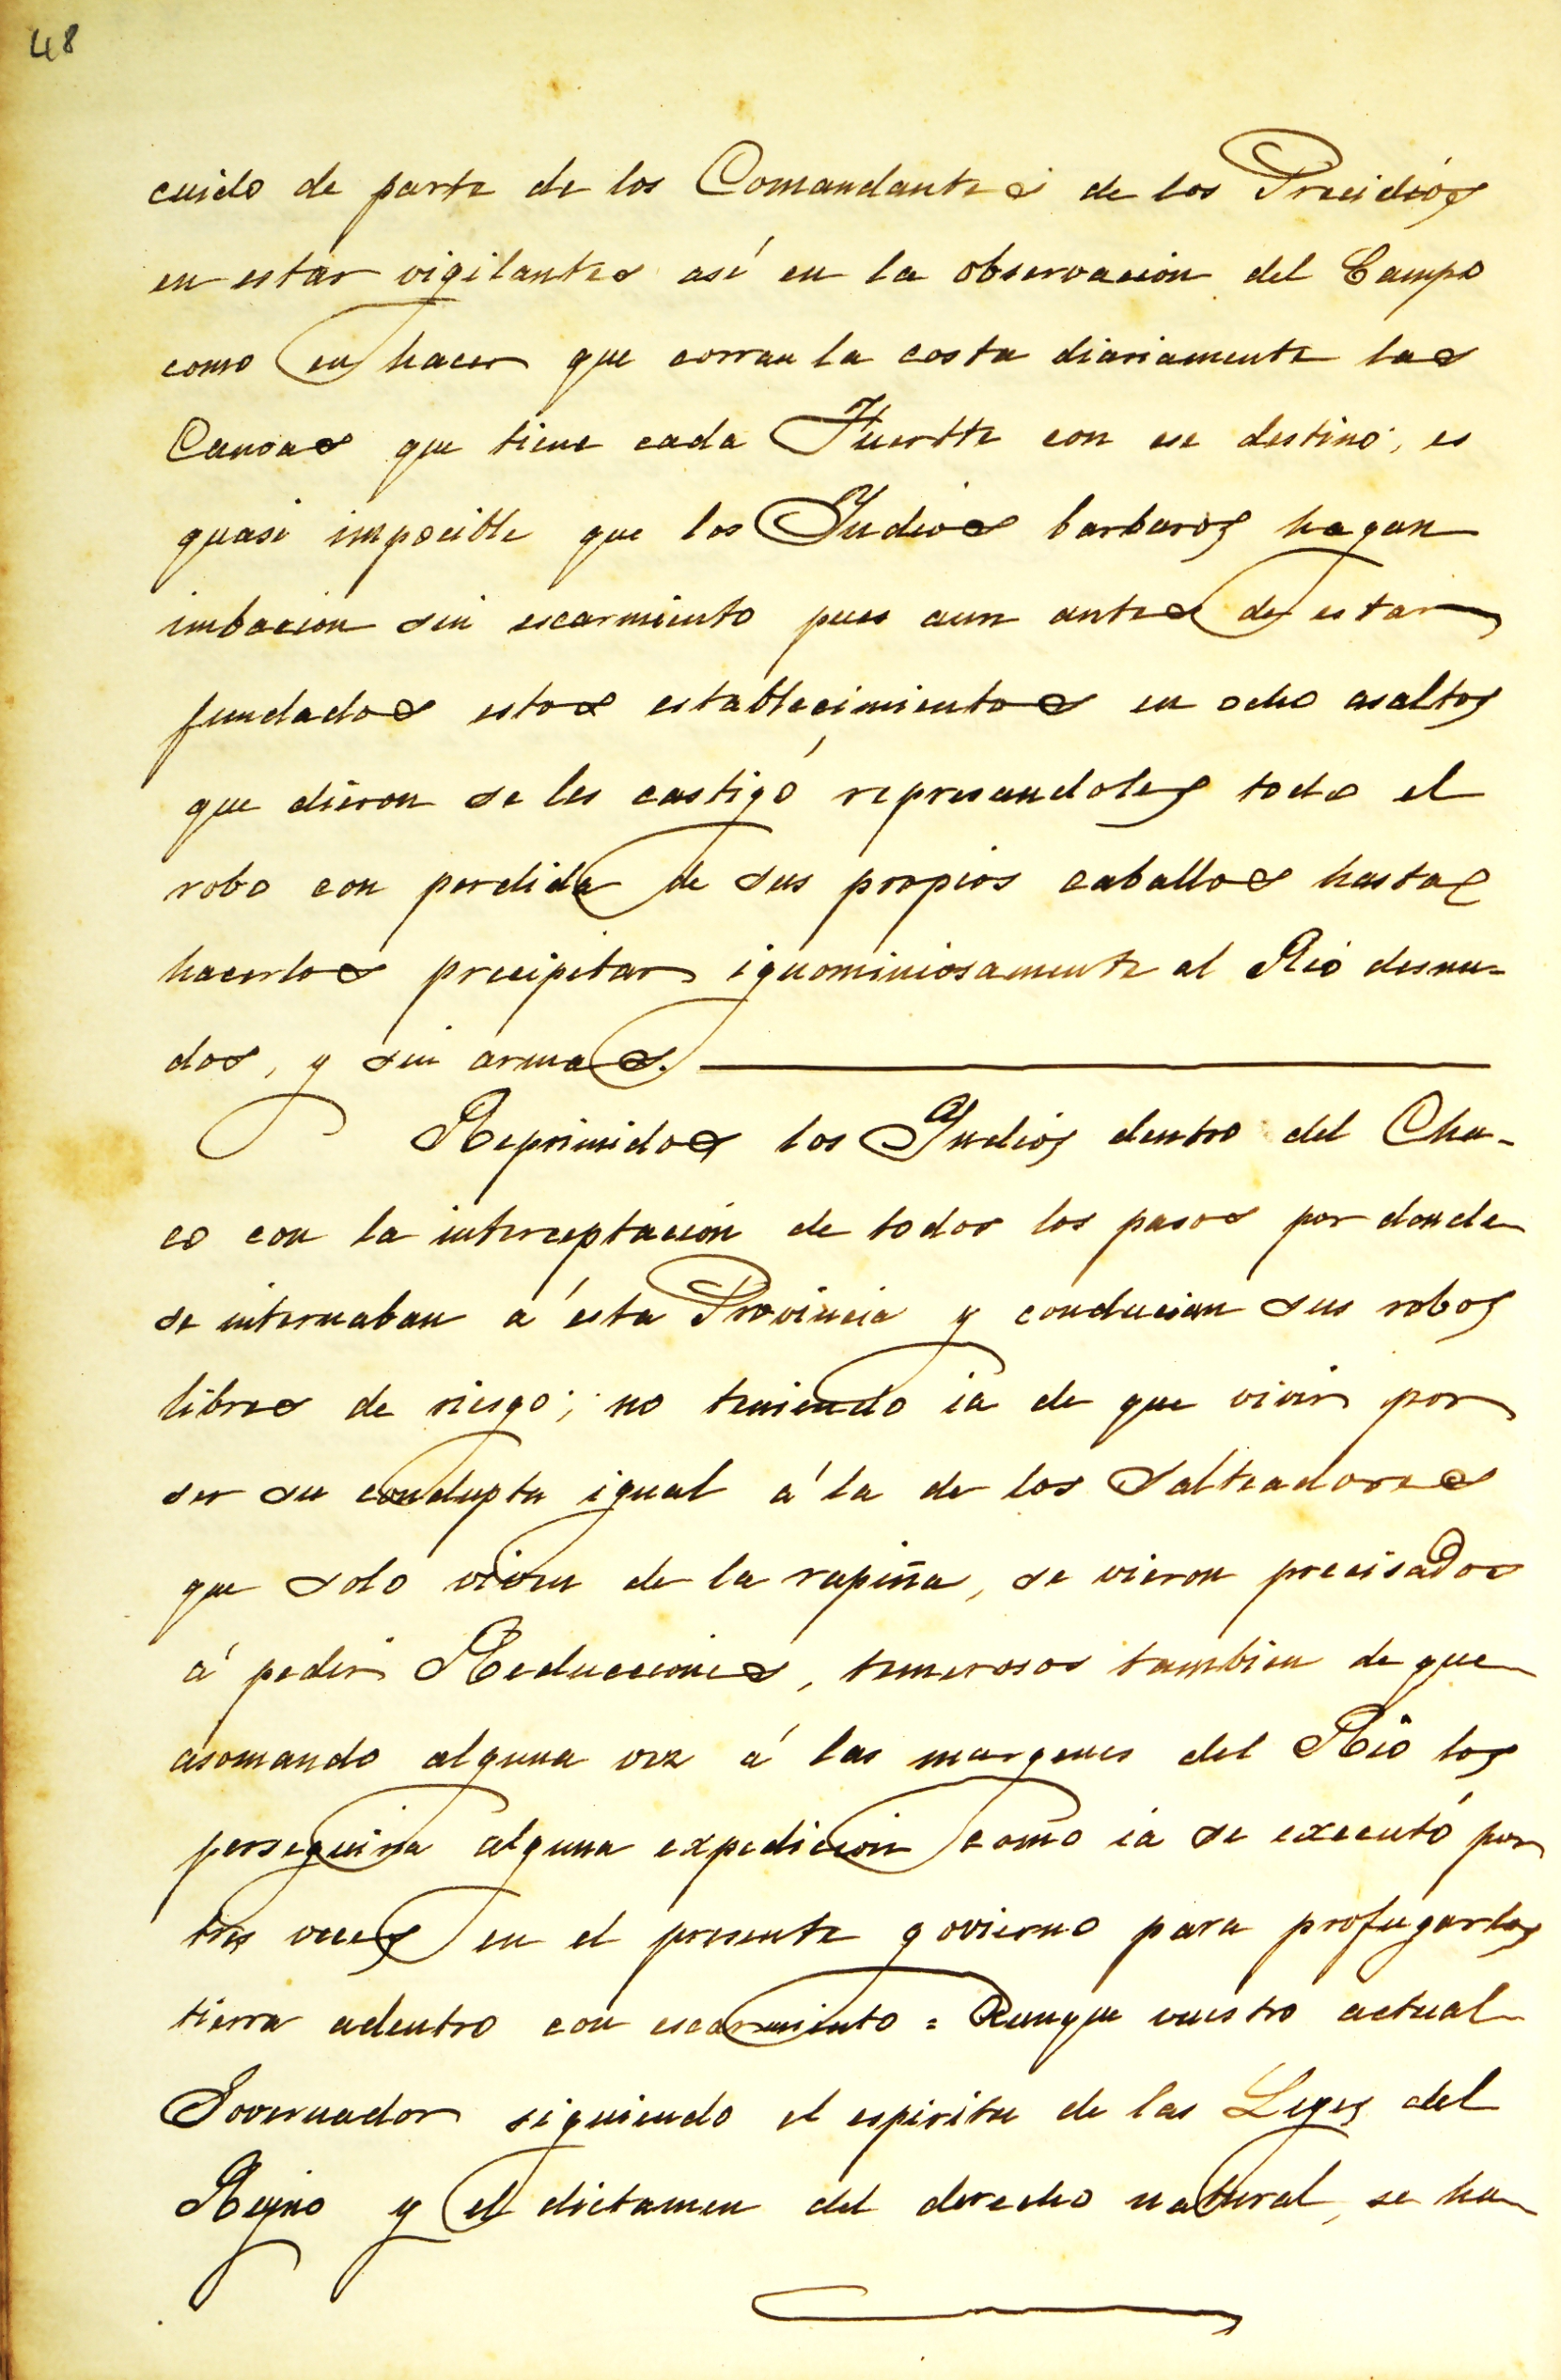 48
cuido de parte de los Comandantes de los Precidios
en estar vigilantes así en la observacion del Campo
como en hacer que corran la costa diariamente las
Canoas que tiene cada Fuertte con ese destino, es
quasi impocible que los Yndios barbaros hagan
imbacion sin escarmiento pues aun antes de estar
fundados estos establecimientos en ocho asaltos
que dieron se les castigó represandoles todo el
robo con perdida de sus propios caballos hasta
hacerlos precipitar ignominiosamente al Rio desnu-
dos, y sin armas.
Reprimidos los Yndios dentro del Cha-
co con la interceptacion de todos los pasos por donde
se internaban á esta Provincia y conducian sus robos
libres de riesgo; no teniendo ia de que vivir por
ser su condupta igual á la de los Salteadores
que solo viven de la rapiña, se vieron precisados
á pedir Reducciones, temerosos tambien de que
asomando alguna vez á las margenes del Rio los
perseguiria alguna expedicion como ia se executó por
tres veces en el presente govierno para profugarlos
tierra adentro con escarmiento = Aunque vuestro actual
Governador siguiendo el espiritu de las Leyes del
Reyno y el dictamen del derecho natural, se ha